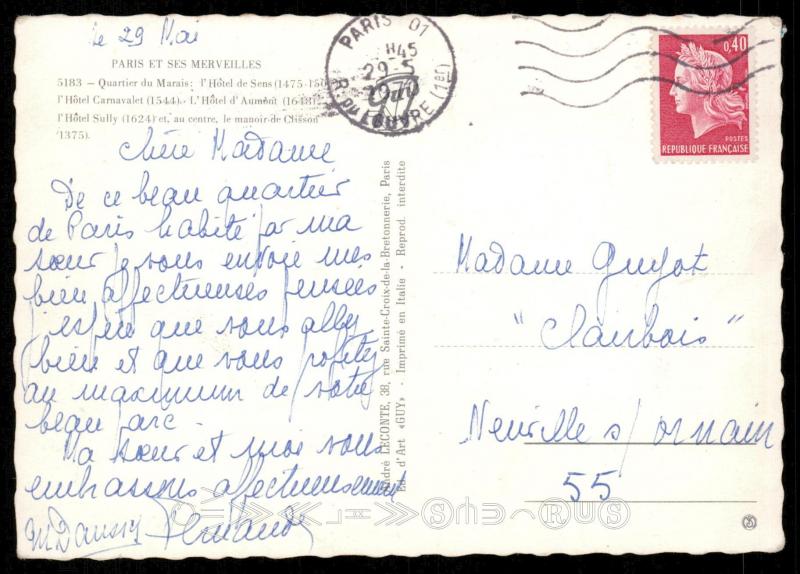 le 29 Mai
PARIS ET SES MERVEILLES
5183 – Quartier du Marais: l'Hôtel de Sens (1475-150
l'Hôtel Carnavalet (1544). L'Hôtel d'Aumont (1648)
l'Hôtel Sully (1624) et, au centre, le manoir de Clisson
(1375).
Chère Madame
De ce beau quartier
de Paris habité par ma
sœur je vous envoie mes
bien affectueuses pensées
j'espère que vous allez
bien et que vous profitez
au maximum de votre
beau parc.
Ma sœur et moi vous
embrassons affectueusement
PARIS 01
H45
29-5
1970
R. DU LOUVRE (1er)
0,40
POSTES
REPUBLIQUE FRANÇAISE
André LECONTE, 38, rue Sainte-Croix-de-la-Bretonnerie, Paris
Ed. d'Art «GUY» - Imprimé en Italie - Reprod. interdite
Madame Guyot
"Clairbois"
Neuville s/ ornain
55